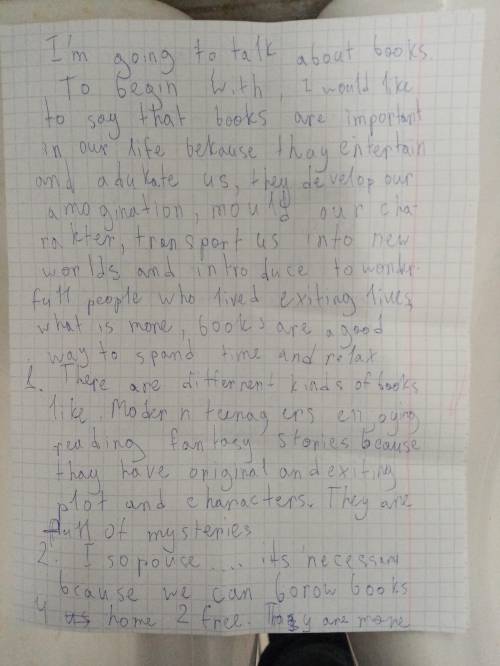 I'm going to talk about books.
To begin with, I would like
to say that books are important
in our life bekause thay entertain
and adukate us, they develop our
amogination, mould our cha-
rakter, transport us into new
worlds and introduce to wonder-
full people who lived exiting lives,
what is more, books are a good
way to spand time and relax
1. There are differrent kinds of books
like. Modern teenagers enjoying
reading fantasy stories bcause
thay have original and exiting
plot and characters. They are
full of mysteries
2. I sopouse .... its necessary
bcause we can borow books
4 home 2 free. They are more